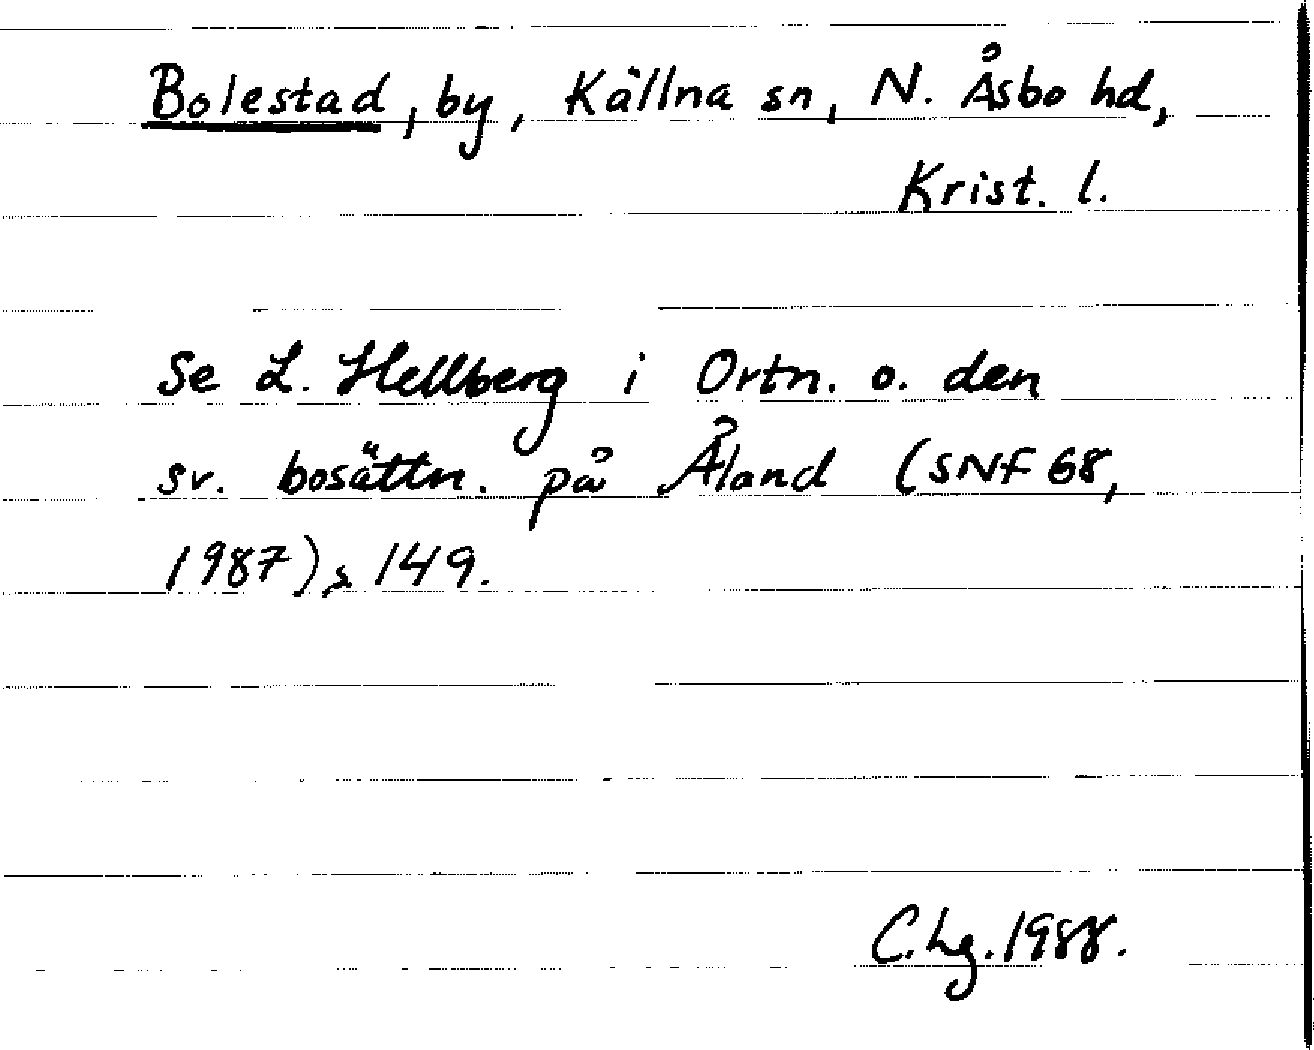 Bolestad, by, Källna sn, N. Åsbo hd,
Krist. l.
Se L. Hellberg i Ortn. o. den
sv. bosättn. på Åland (SNF 68,
1987) s 149.
C.hg. 1988.